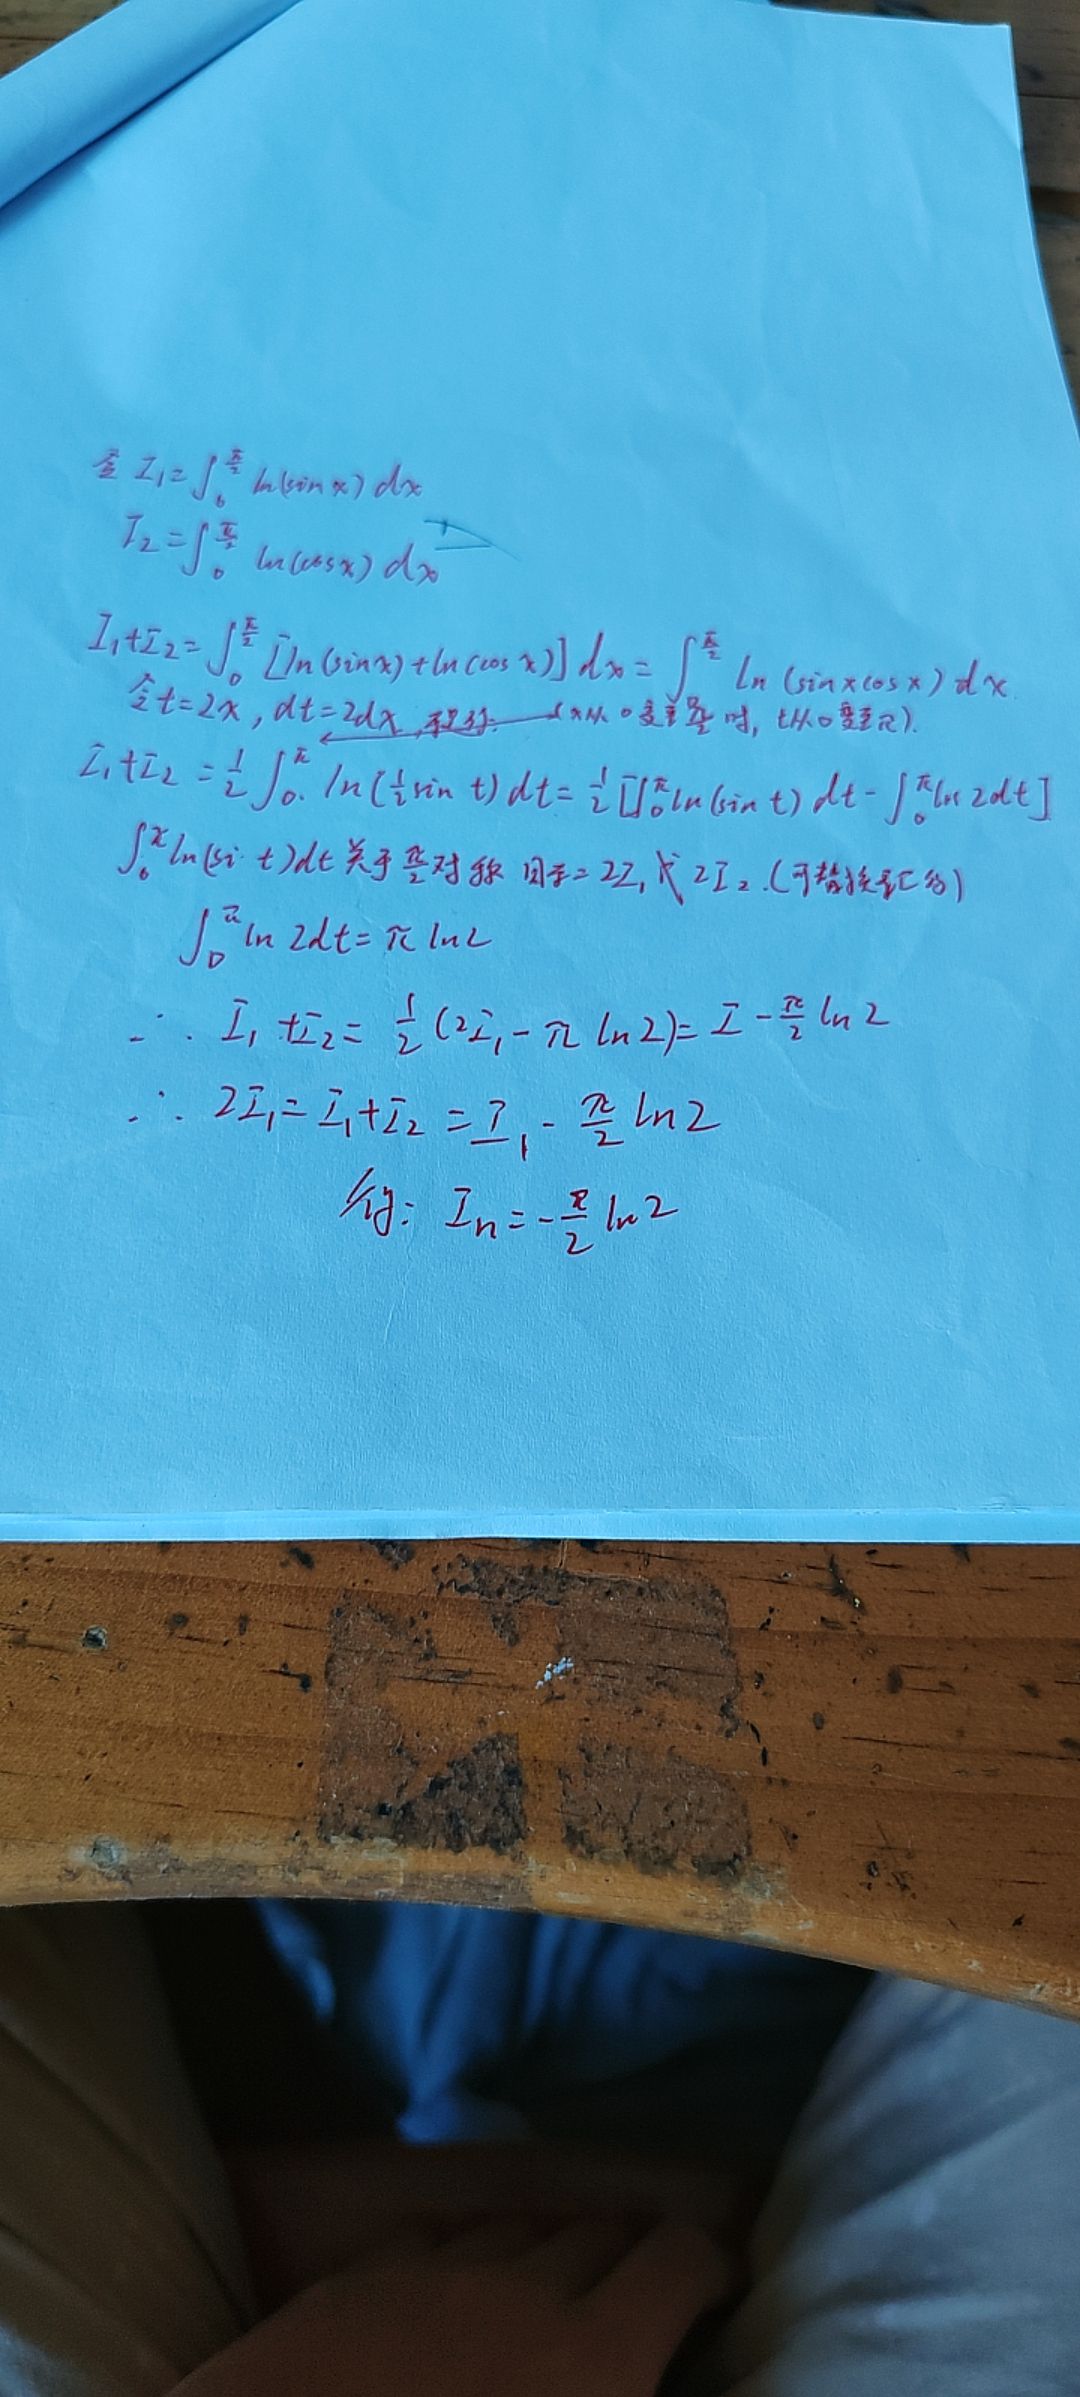 令 I₁=∫₀^(π/2) ln(sin x) dx
I₂=∫₀^(π/2) ln(cosx) dx
I₁+I₂=∫₀^(π/2) [ln(sinx)+ln(cosx)] dx=∫₀^(π/2) ln(sinxcosx)dx
令t=2x, dt=2dx, (x从0变至π/2时, t从0变至π).
I₁+I₂=1/2∫₀^π ln(1/2 sin t)dt=1/2[∫₀^π ln(sin t)dt-∫₀^π ln2dt]
∫₀^π ln(si t)dt关于π/2对称 =2I₁或2I₂.(可替换
∫₀^π ln2dt=πln2
∴ I₁+I₂=1/2(2I₁-πln2)=I-π/2 ln2
∴ 2I₁=I₁+I₂=I₁-π/2 ln2
得: Iₙ=-π/2 ln2